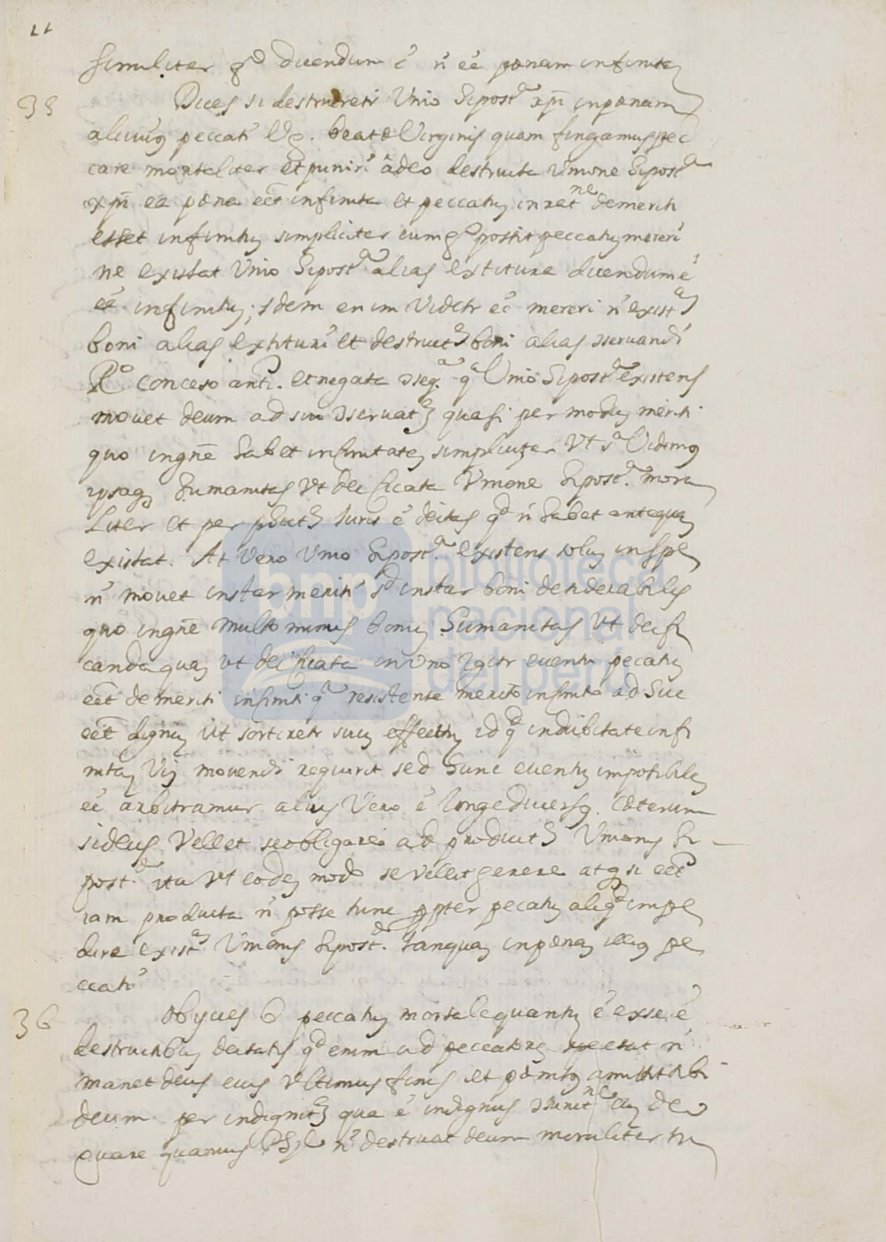 similiter qd dicendum ē n̄ ēē poenam infinita
35 Dices si destrueretr Unio Hypostca xpi in poenam
alicuius peccati Vg. beatae Virginis quam fingamus pec
care mortaliter et puniri adeo destructa Unione Hypostca
xpi ea poena eēt infinita et peccatu in ratne demeriti
esset infinitu simpliciter cum posit peccatu mereri
ne existat Unio Hypostca alias extitura dicendum ē
ēē infinitu; idem enim videtr ēē mereri n̄ exista
boni alias extituri et destructe boni alias conservandi
Ro conceso anti. et negata conseqa qa Unio Hypostca existens
movet deum ad sui conservate quasi per modu meriti
quo in gne habet infinitate simpliciter Ut sa Vidimus
ipsaq humanitas Ut deificata Unione Hypostca mora
liter et per poducte Juris ē deitas qd n̄ habet antequa
existat. At vero Unio Hypostca existens solu in spe
n̄ movet instar meriti sd instar boni desiderabilis
quo in gne multo minus bonu humanitas Ut deifi
canda qua ut deificata in uno igitr eventu pecatu
eēt demeriti infiniti qa resistente merito infinito ad hue
eēt dignu ut sortiretr suu effectu id qd indubitate infi
nita Vi movendi requirit sed hunc eventu imposibile
ēē arbitramur alius Vero ē longe diversus. Caeterum
si deus Vellet se obligare ad producte Unionis Hy
postca ita Ut eodem modo se vellet gerere atq si eēt
iam producta n̄ posse tunc ppter pecatu aliqd impe
dire exista Unionis Hypostca tanqua in poena illius pe
ccati
36 Objicies 6 peccatu mortale quantu ē ex se ē
destructibu deitatis qd enim ad peccatore n̄
manet deus eius Ultimus finis et poenitus amittit sibi
deum per indignite qua ē indignus cum deo
quare quamvis n̄ destruat deum moraliter tn